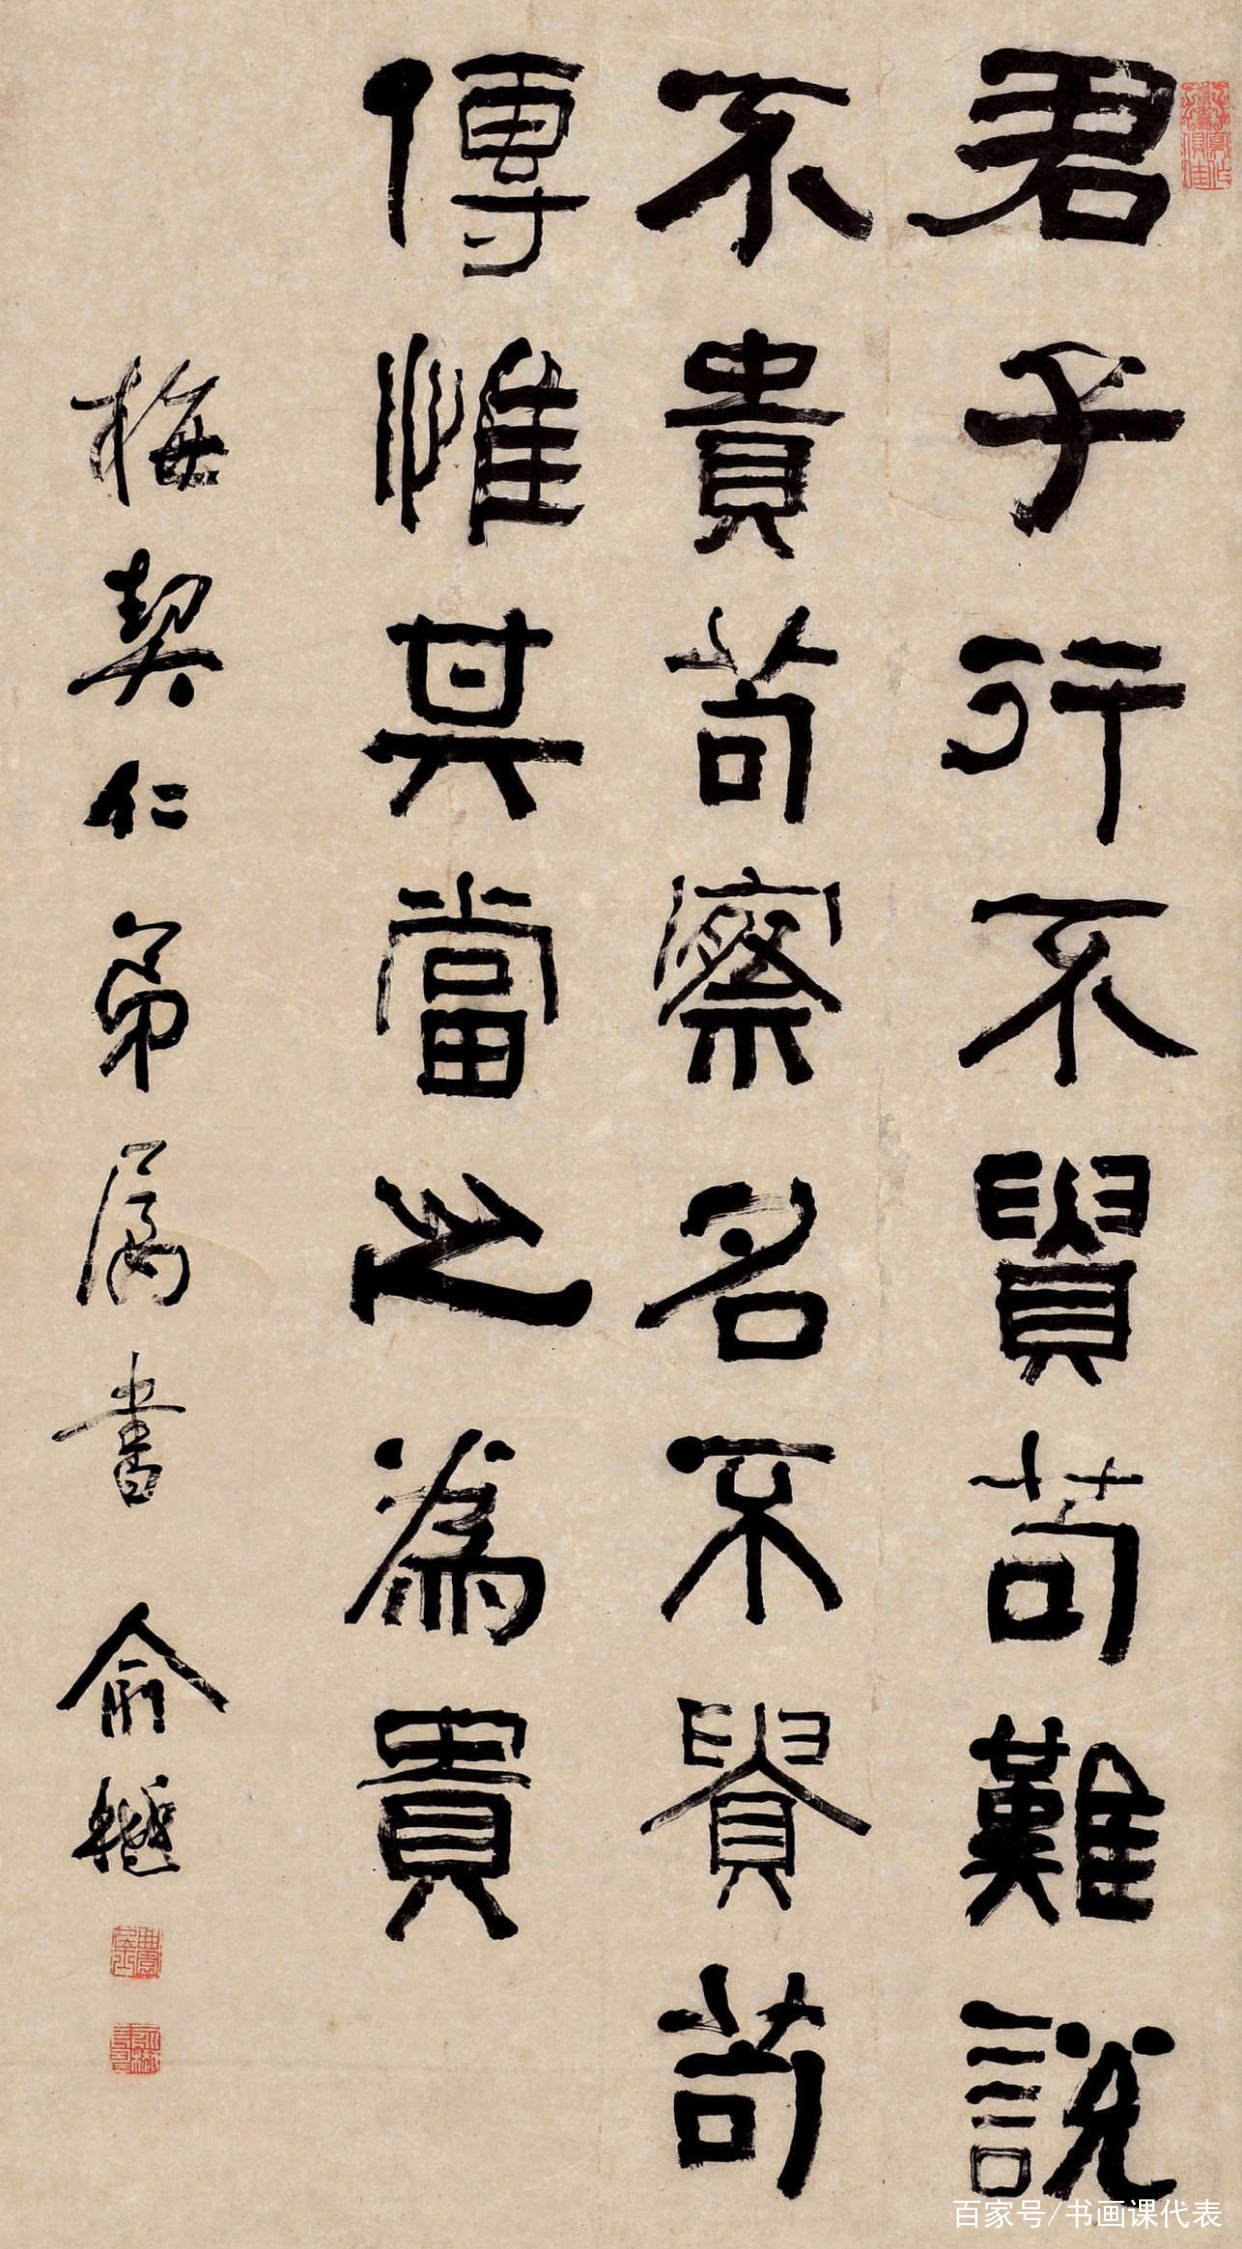 君子行不貴苟難說
不貴苟察名不貴苟
傳惟其當之為貴
梅契仁弟屬書 俞樾
百家号/书画课代表